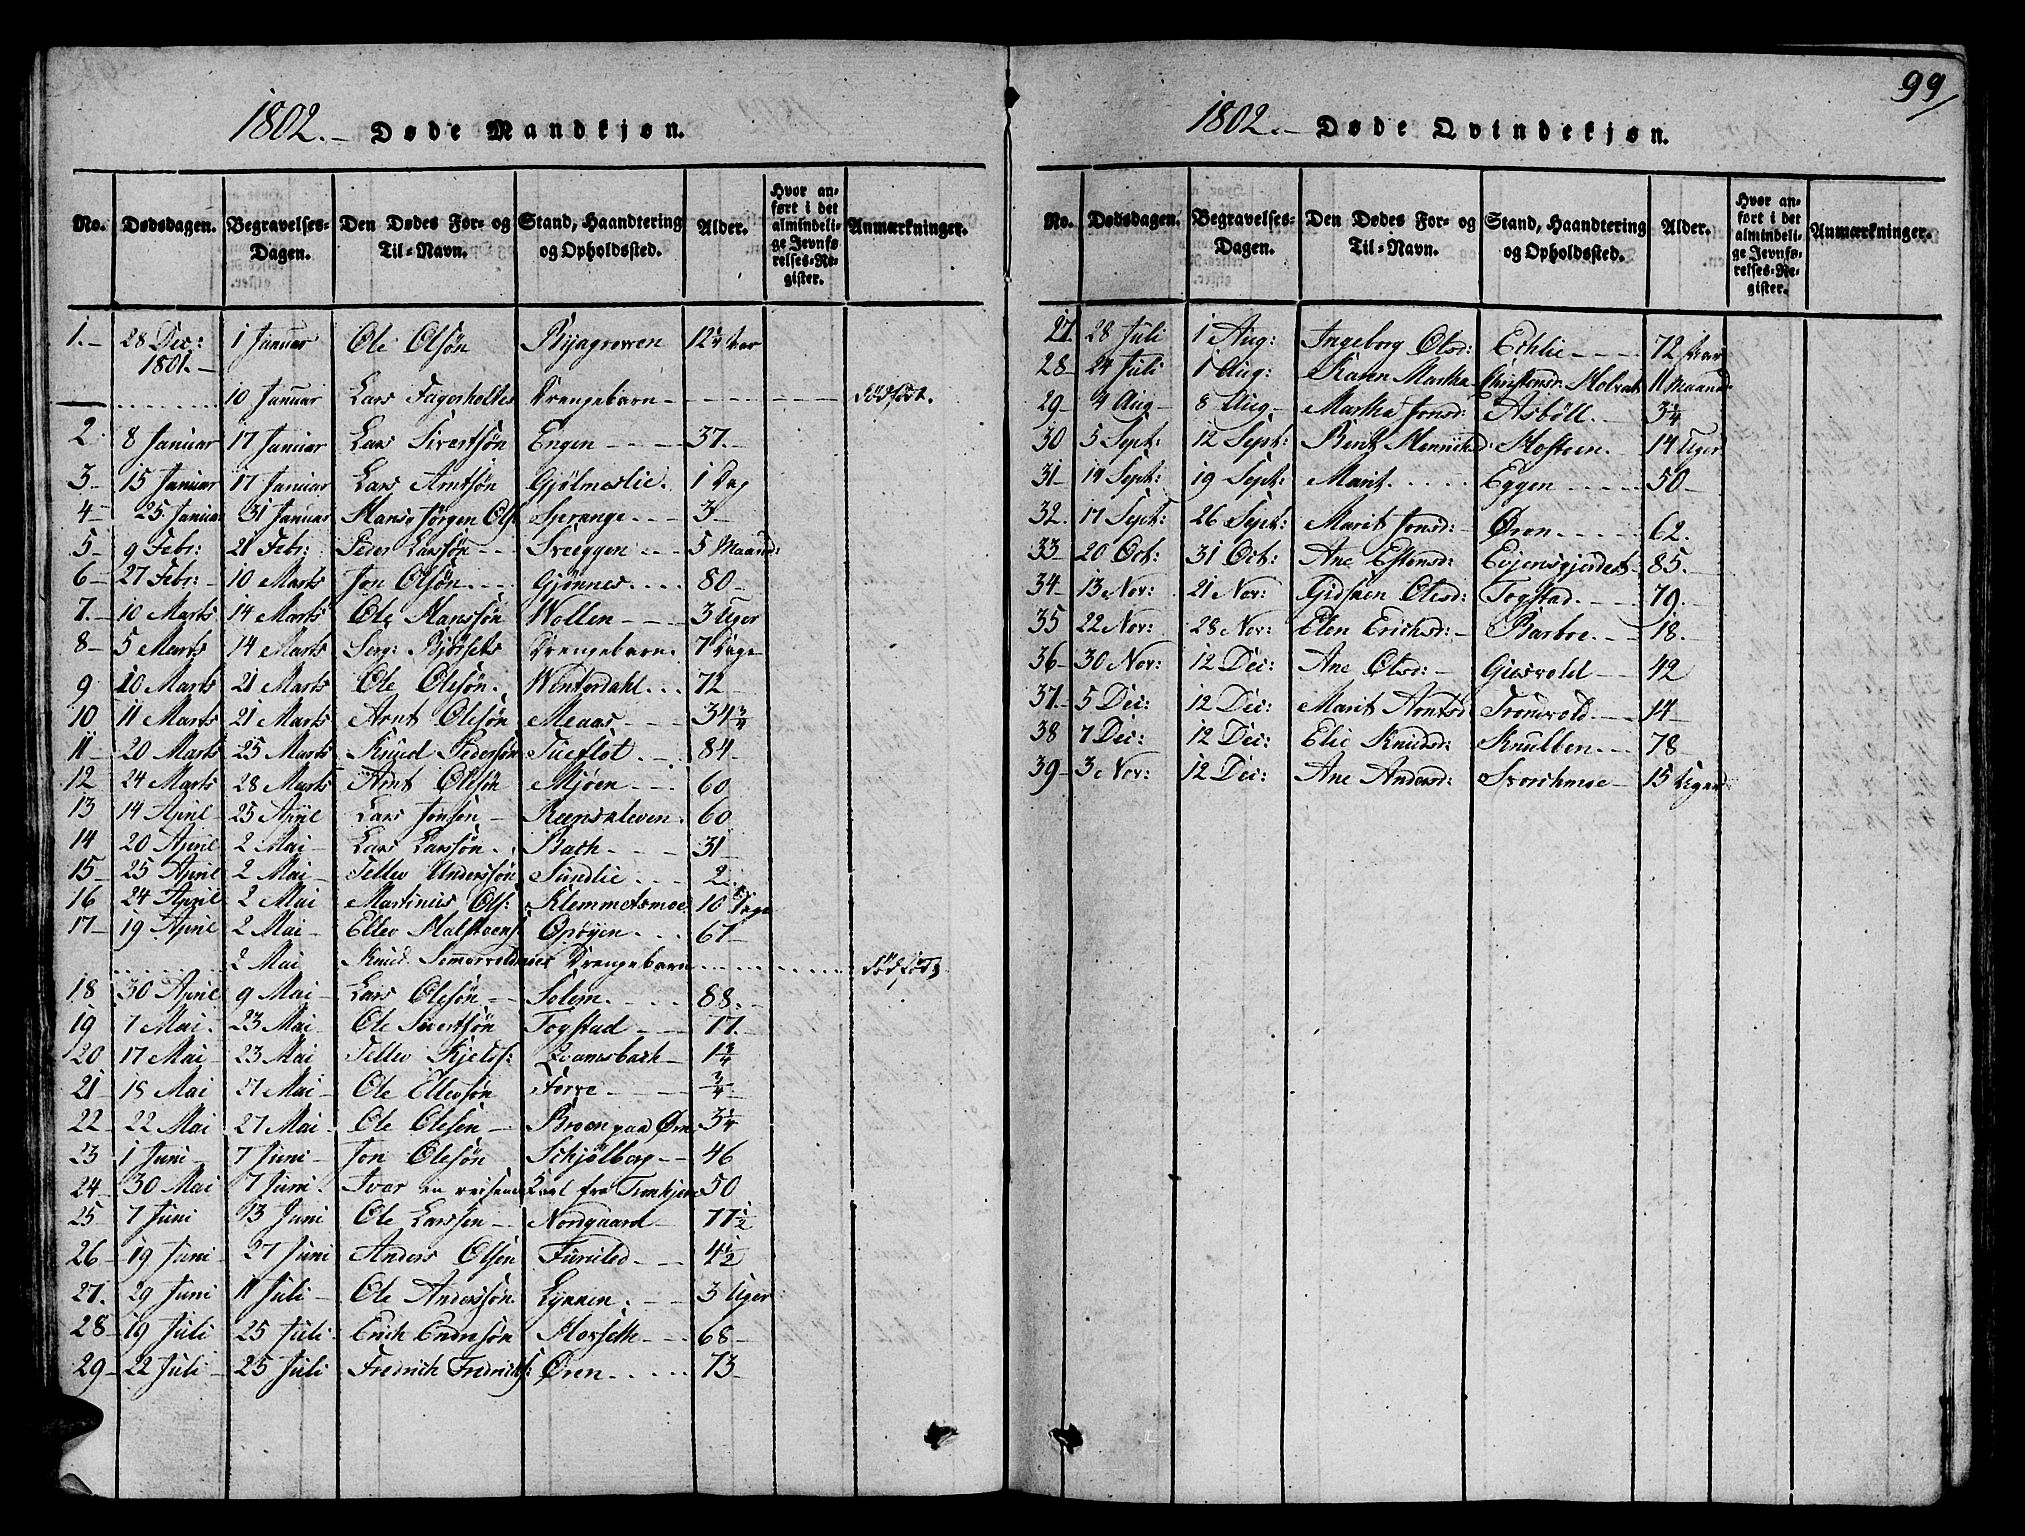 1802. – Døde Mandkjøn.
No. Dødsdagen. Begravelses-Dagen. Den Dødes For- og Til-Navn. Stand, Haandtering og Opholdssted. Alder. Hvor anført i det almindelige Jevnførelses-Register. Anmærkninger.
1. – 28 Dec: 1801. – 1 Januar Ole Olsøn 12¼ Aar
10 Januar Lars Fagerholtes Drengebarn – dödföd.
2 8 Januar 17 Januar Lars Sivertsön Engen – 37. –
3 – 15 Januar 17 Januar Lars Arntsön Gjölmeslie. 1 Dag
4 – 25 Januar 31 Januar Hans Jörgen Ols: Sprange. 3 –
5 – 9 Febr: 21 Febr: Peder Larsön – Sveeggen 5 Maand:
6 – 27 Febr: – 10 Marts Jon Olsön Gjönnes 80 –
7. – 10 Marts 14 Marts Ole Hanssön Wollen – 3 Uger
8 – 5 Marts 14 Marts Serg: Bjösets Drengebarn. 7 Dage
9 10 Marts 21 Marts Ole Olesön. Winterdahl 72 –
10 11 Marts 21 Marts Arnt Olesön Meaas 34¾
11 – 20 Marts 25 Marts Knud Pedersön Tueflot 84 –
12 24 Marts 28 Marts Arnt Olesön Mjöen 60
13 14 April – 25 April Lars Jonsön – Reenskleven. 60
14 20 April 2 Mai – Lars Larssön. Bach – 31
15 – 25 April 2 Mai – Tellev Anderssön Sundlie 2.
16 24 April 2 Mai Martinus Ols: Klemmetsmoe 10 Dage
17 – 19 April 2 Mai – Ellev Halsteens: Opöyen. 67 –
2 Mai Knud Drengebarn dödfödt
18 30 April 9 Mai – Lars Olesön – Solem. 88. –
19 7 Mai. 23 Mai – Ole Sivertsön Togstad – 17. –
20 17 Mai – 23 Mai Tellev Kjelds: Qvamsbach – 1¾
21 – 18 Mai 27 Mai – Ole Ellevsön Forre – ¾
22 – 22 Mai 27 Mai. Ole Olesön – Broen paa Ören 3¼
23 1 Juni – 7 Juni – Jon Olesön Schjölberg – 46
24 – 30 Mai 7 Juni. Ivar en reisende Karl fra Tronhjem 50
25 – 7 Juni 13 Juni Ole Larssen – Nordgaard – 77½
26 – 19 Juni – 27 Juni Anders Olsen 4½
27. – 29 Juni 11 Juli – Ole Anderssön. Lynnen. 3 Uger
28 – 19 Juli 25 Juli Erich Endresön Horseth 68 –
29 – 22 Juli – 25 Juli Fredrich Fredrichs: Ören 73 –
99
1802. – Døde Qvindekjøn.
No. Dødsdagen. Begravelses-Dagen. Den Dødes For- og Til-Navn. Stand, Haandtering og Opholdssted. Alder. Hvor anført i det almindelige Jevnførelses-Register. Anmærkninger.
27. 28 Juli 1 Aug: Ingeborg Olsd: Echlie 72 Aar
28 – 24 Juli 1 Aug: Karen Martha Christensd: Holvat 11 Maaned
29 – 4 Aug – 8 Aug – Martha Jonsd: Asböll 3¼
30 5 Sept: 12 Sept: Berit Henrichsd: Hosteen. 14 Uger
31 – 14 Sept: 19 Sept: Marit. Eggen 50 –
32. 17 Sept: 26 Sept: Marit Jonsd: – Ören 62. –
33 – 20 Oct: 31 Oct: Ane Estensd: Evjensgjerdet – 85. –
34 – 13 Nov: 21 Nov: Gidsken Olesd: Togstad. 79. –
35 22 Nov: 28 Nov: Elen Erichsd: – Barboe. 18. –
36 – 30 Nov: 12 Dec: Ane Olsd: Giesvold – 42
37. – 5 Dec: 12 Dec: Marit Arntsd: Tronsvold. 14 –
38 7 Dec: 12 Dec: Elie Knudsd: Knulben 78
39 – 3 Nov: 12 Dec: Ane Andersd: Svorchmoe – 15 Uger